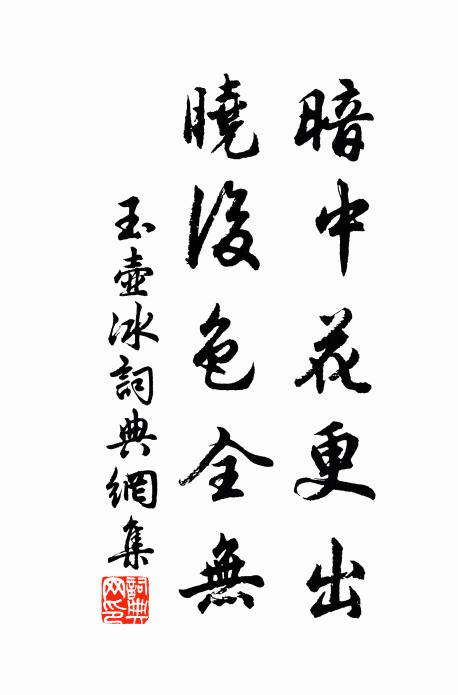 暗中花更出
曉後色全無
玉壺冰詞典網集
詞典
网印